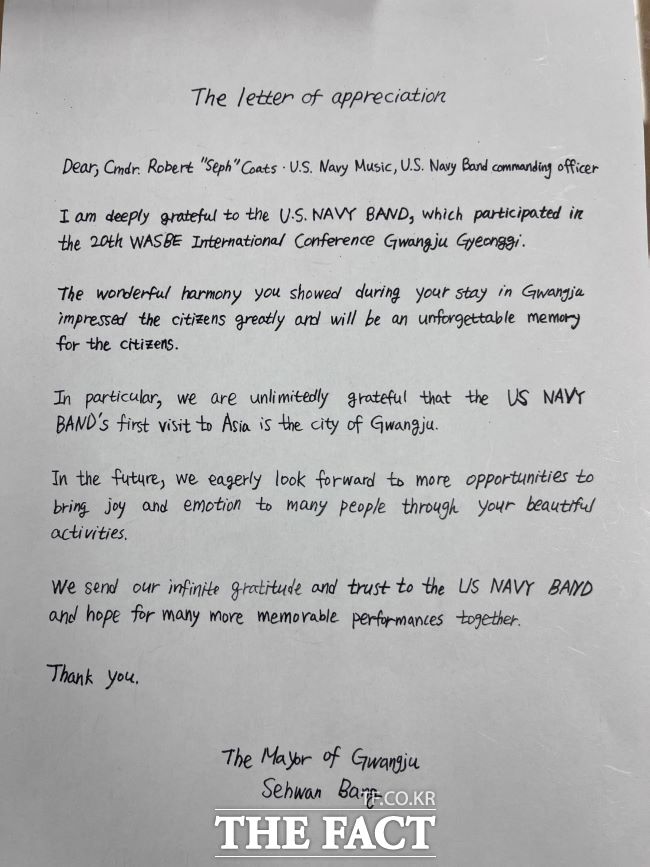 The letter of appreciation
Dear, Cmdr. Robert "Seph" Coats · U.S. Navy Music, U.S. Navy Band commanding officer
I am deeply grateful to the U.S. NAVY BAND, which participated in
the 20th WASBE International Conference Gwangju Gyeonggi.
The wonderful harmony you showed during your stay in Gwangju
impressed the citizens greatly and will be an unforgettable memory
for the citizens.
In particular, we are unlimitedly grateful that the US NAVY
BAND's first visit to Asia is the city of Gwangju.
In the future, we eagerly look forward to more opportunities to
bring joy and emotion to many people through your beautiful
activities.
We send our infinite gratitude and trust to the US NAVY BAND
and hope for many more memorable performances together.
Thank you.
The Mayor of Gwangju
Sehwan Bang
TF.CO.KR
THE FACT